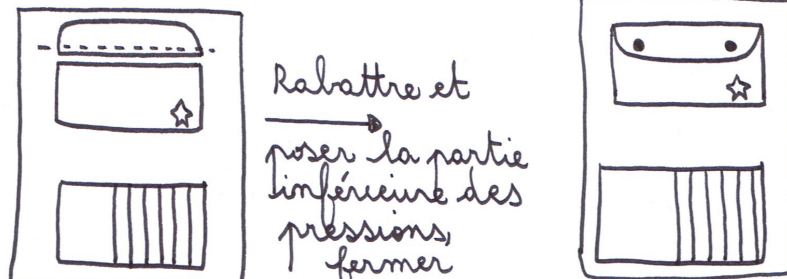 Rabattre et
poser la partie
inférieure des
pressions,
fermer